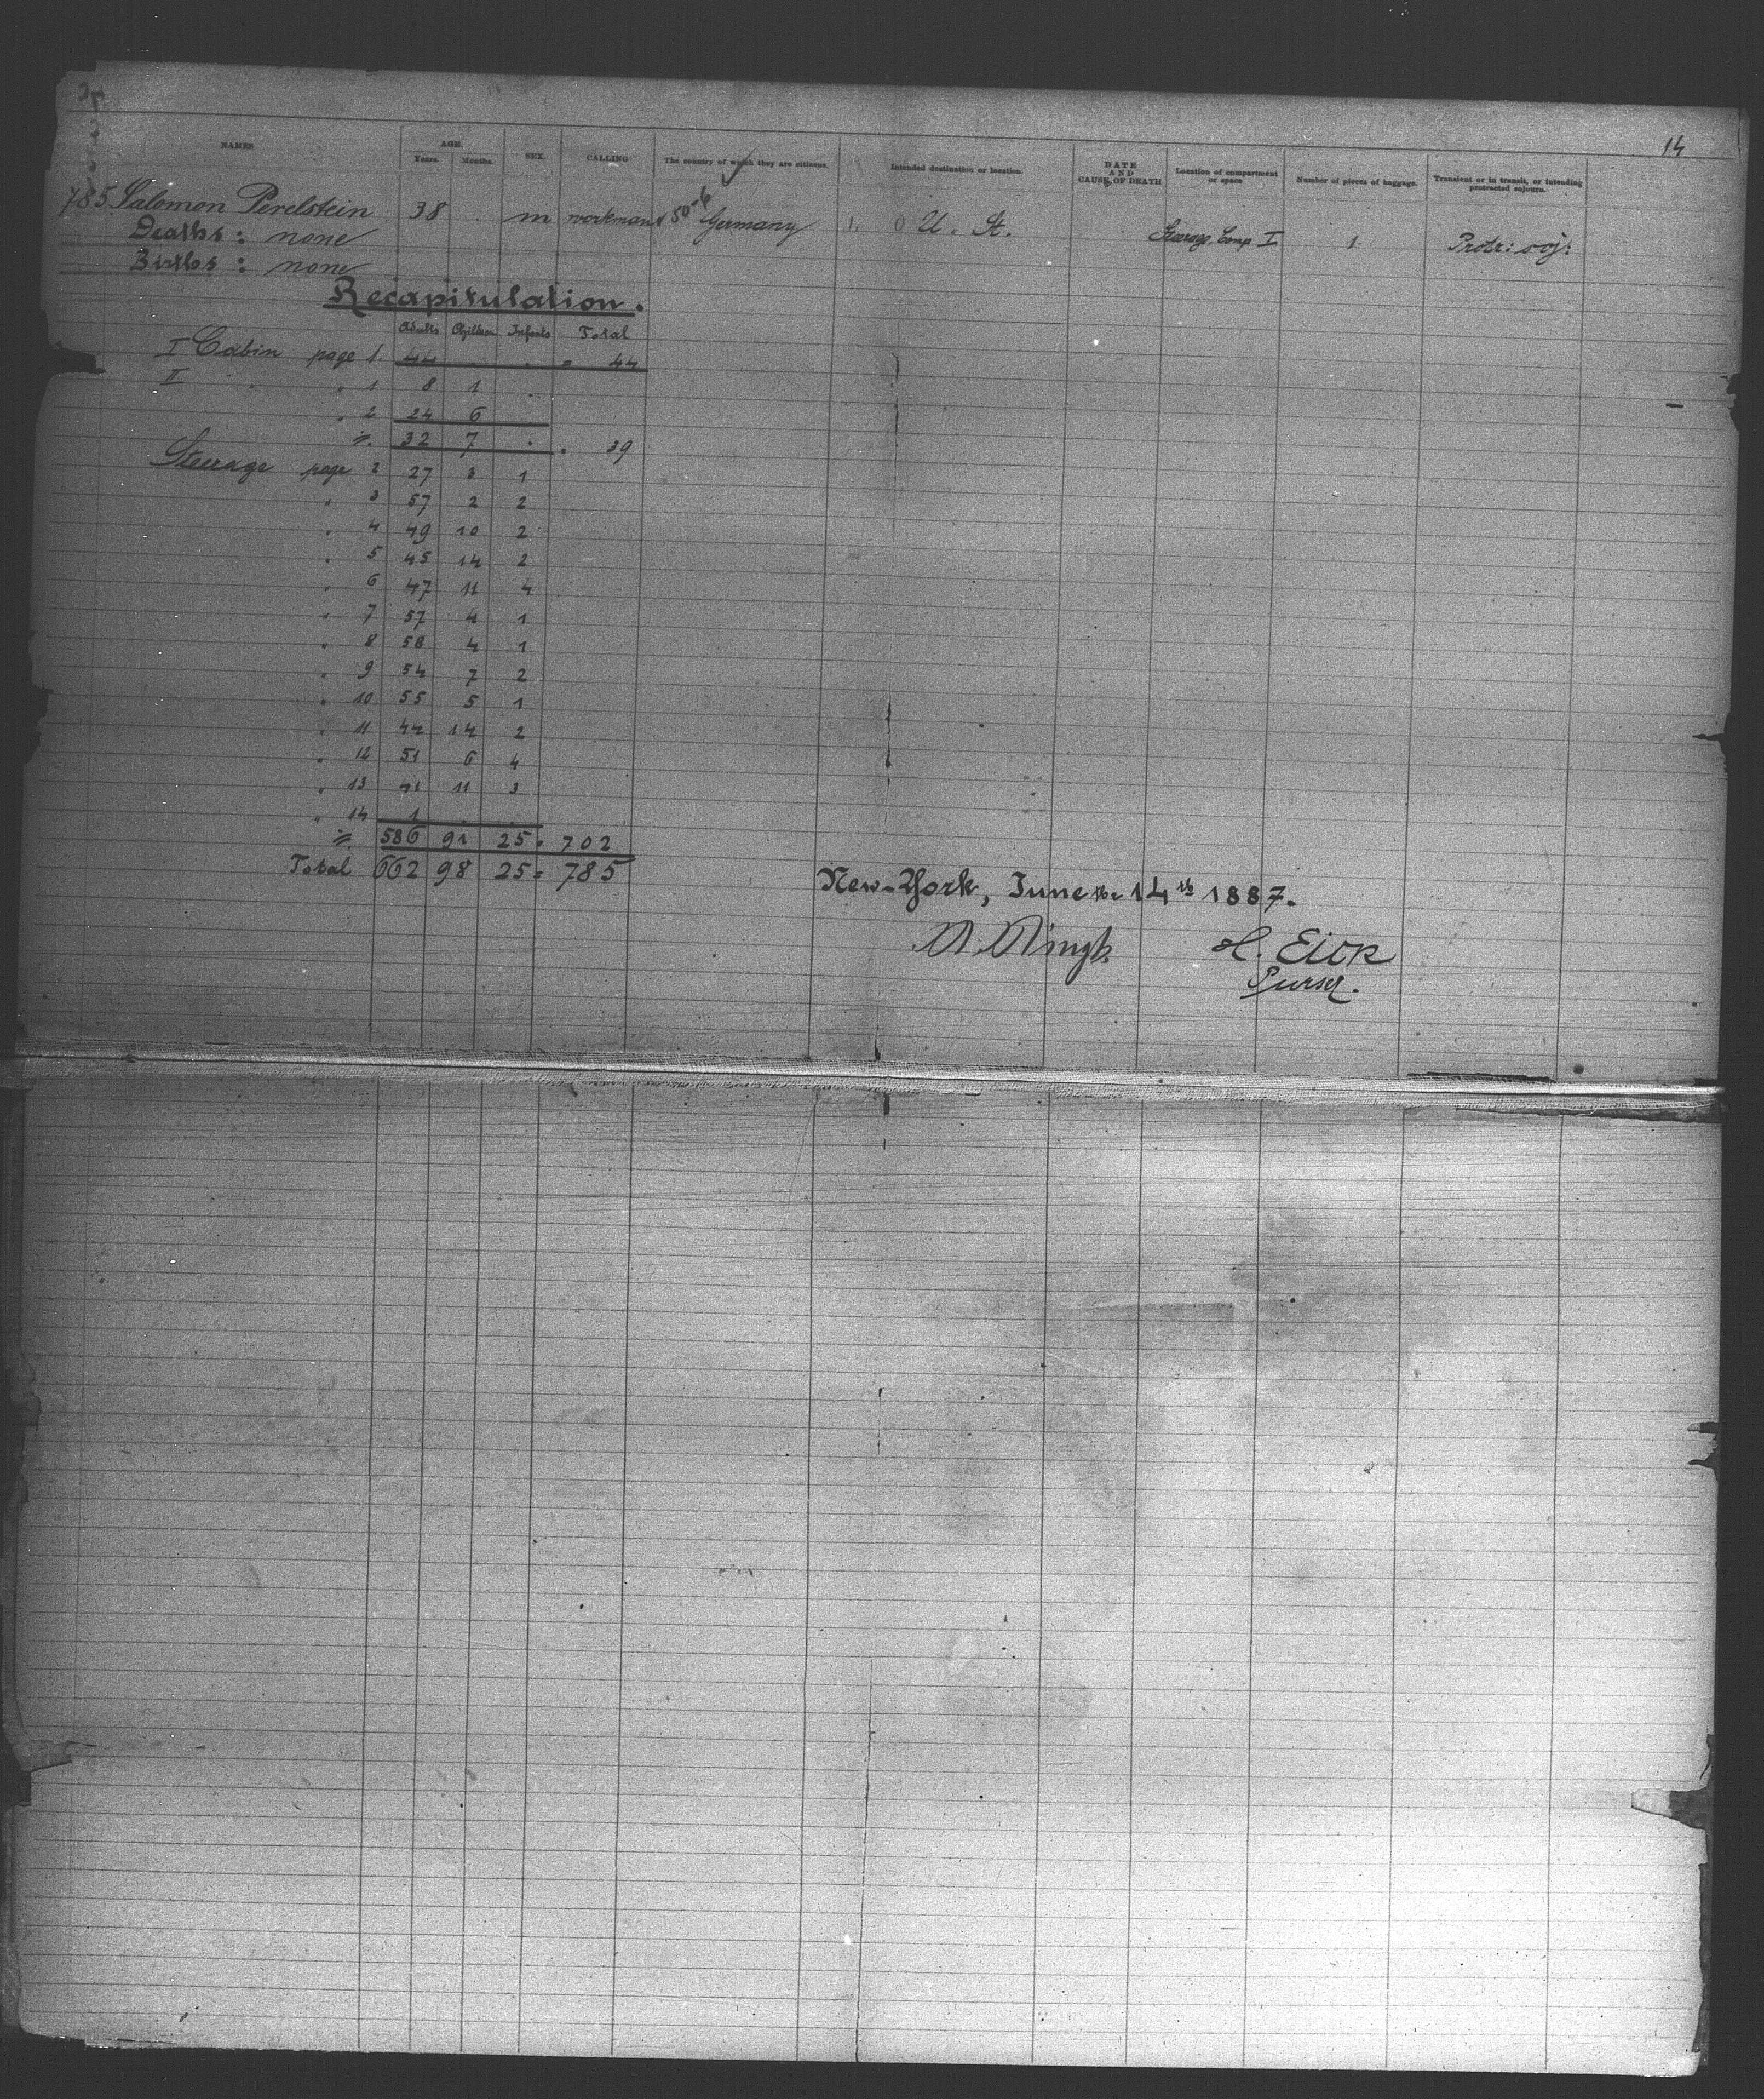 14
NAMES AGE. Years. Months. SEX. CALLING The country of which they are citizens. Intended destination or location. DATE AND CAUSE OF DEATH Location of compartment or space Number of pieces of baggage. Transient or in transit, or intending protracted sojourn.
785 Salomon Perelstein 38 m workman Germany U. St. Steerage Comp I 1 Protr: soj:
Deaths: none
Births: none
Recapitulation.
Adults Children Infants Total
I Cabin page 1. 44 . . = 44
II " " 1 8 1 .
" 2 24 6
32 7 . . 39
Steerage page 2 27 3 1
" 3 57 2 2
" 4 49 10 2
" 5 45 14 2
" 6 47 11 4
" 7 57 4 1
" 8 58 4 1
" 9 54 7 2
" 10 55 5 1
" 11 14 2
" 12 51 6 4
" 13 11 3
" 14 1
586 91 25 = 702
Total 662 98 25 = 785
New-York, June the 14th 1887.
H. Eick
Purser.